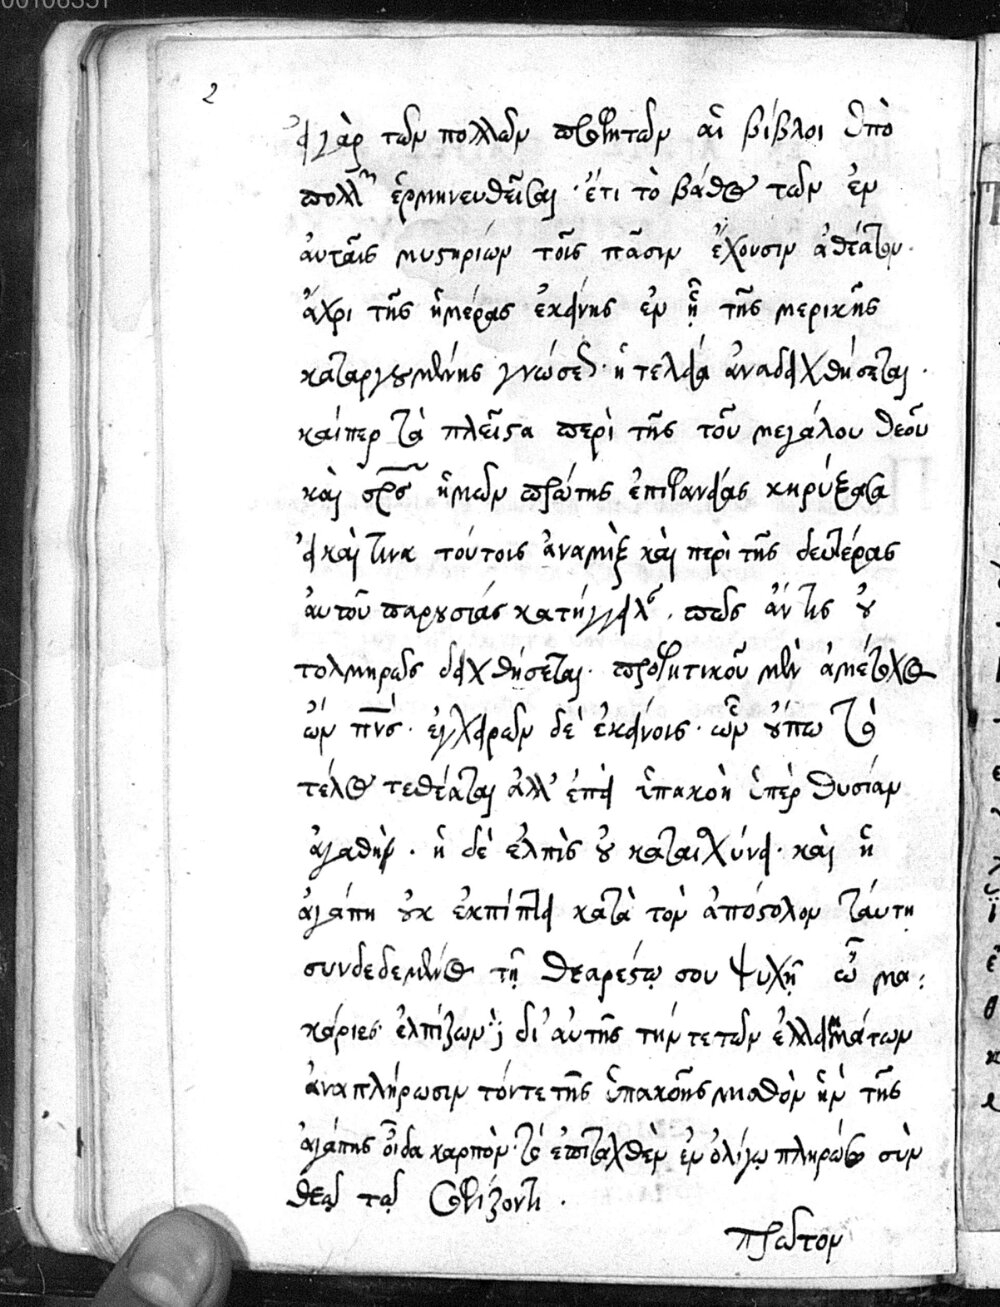 00106351
2
εἰ γὰρ τῶν πολλῶν προφητῶν αἱ βίβλοι ὑπὸ
πολλῶν ἑρμηνευθεῖσαι· ἔτι τὸ βάθος τῶν ἐν
αὐταῖς μυστηρίων τοῖς πᾶσιν ἔχουσιν ἀθέατον·
ἄχρι τῆς ἡμέρας ἐκείνης ἐν ᾗ τῆς μερικῆς
καταργουμένης γνώσεως· ἡ τελεία ἀναδειχθήσεται·
καίπερ τὰ πλεῖστα περὶ τῆς τοῦ μεγάλου θεοῦ
καὶ σρσ ἡμῶν πρώτης ἐπιφανείας κηρύξασαι
εἰ καὶ τινα τούτοις ἀναμὶξ καὶ περὶ τῆς δευτέρας
αὐτοῦ παρουσίας κατήγγειλαν· πῶς ἄν τις οὐ
τολμηρῶς δειχθήσεται· προφητικοῦ μὲν ἀμέτοχος
ὢν πνς· ἐγχειρῶν δὲ ἐκείνοις· ὧν οὔπω τὸ
τέλος τεθέαται ἀλλ' ἐπεὶ ὑπακοὴ ὑπὲρ θυσίαν
ἀγαθὴν· ἡ δὲ ἐλπὶς οὐ καταισχύνει· καὶ ἡ
ἀγάπη οὐκ ἐκπίπτει κατὰ τὸν ἀπόστολον ταύτῃ
συνδεδεμένος τῇ θεαρέστῳ σου ψυχῇ ὦ μα:
κάριε· ἐλπίζων δι' αὐτῆς τήν τε τῶν ἐλλειμμάτων
ἀναπλήρωσιν τόν τε τῆς ὑπακοῆς μισθὸν ἣν τῆς
ἀγάπης οἶδα καρπὸν· τὸ ἐπιταχθὲν ἐν ὀλίγῳ πληρώσω σὺν
θεῷ τῷ σοφίζοντι·
πρῶτον